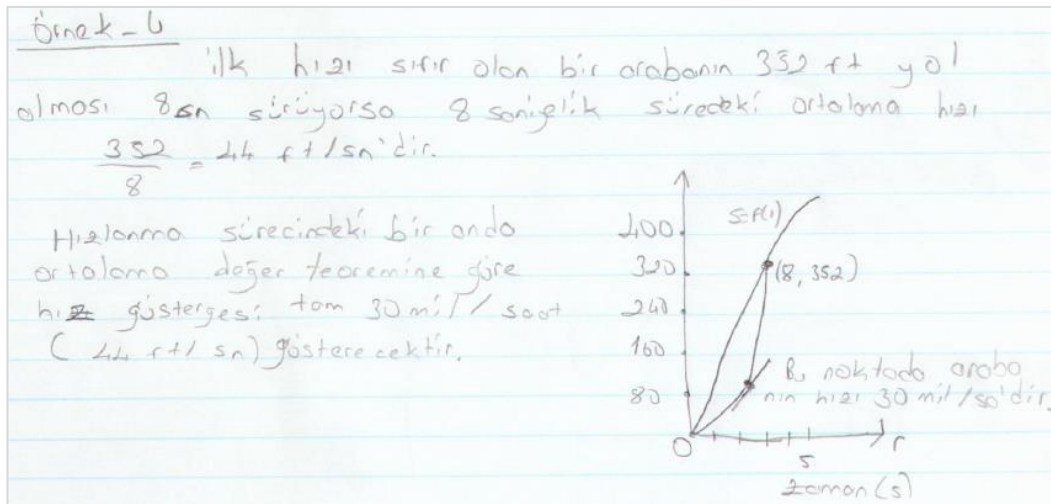 Örnek-4
ilk hızı sıfır olan bir arabanın 352 ft yol
alması 8sn sürüyorsa 8 saniyelik süredeki ortalama hızı
352/8 = 44 ft/sn'dir.
Hızlanma sürecindeki bir anda
ortalama değer teoremine göre
hız göstergesi tam 30 mil/saat
(44 ft/sn) gösterecektir.
s=f(t)
400
320
(8, 352)
240
160
80
Bu noktada araba
nın hızı 30 mil/sa'dir.
0
5
t
zaman (s)